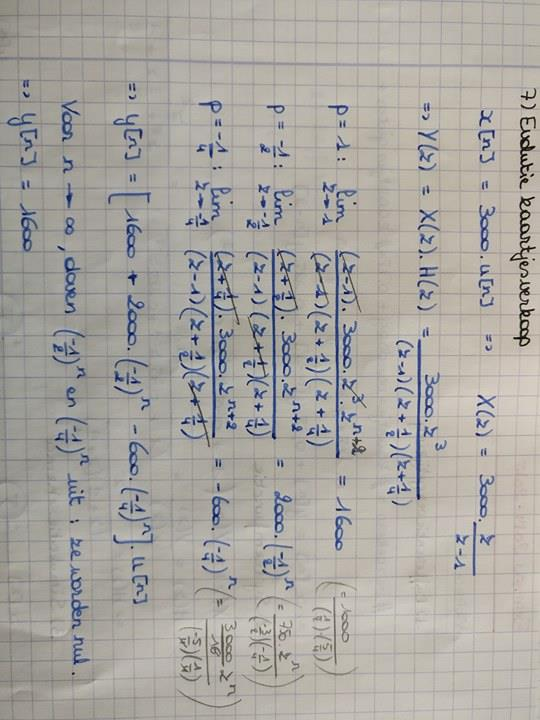 7) Evolutie kaartjesverkoop
x[n] = 3000.u[n] => X(z) = 3000. z/(z-1)
=> Y(z) = X(z).H(z) = 3000.z³/((z-1)(z+1/2)(z+1/4))
p=1: lim z→1 (z-1).3000.z³.z^(n+2)/((z-1)(z+1/2)(z+1/4)) = 1600
p=-1/2: lim z→-1/2 (z+1/2).3000.z^(n+2)/((z-1)(z+1/2)(z+1/4)) = 2000.(-1/2)^n
p=-1/4: lim z→-1/4 (z+1/4).3000.z^(n+2)/((z-1)(z+1/2)(z+1/4)) = -600.(-1/4)^n
=> y[n] = [1600 + 2000.(-1/2)^n - 600.(-1/4)^n].u[n]
Voor n → ∞, doven (-1/2)^n en (-1/4)^n uit: ze worden nul.
=> y[n] = 1600